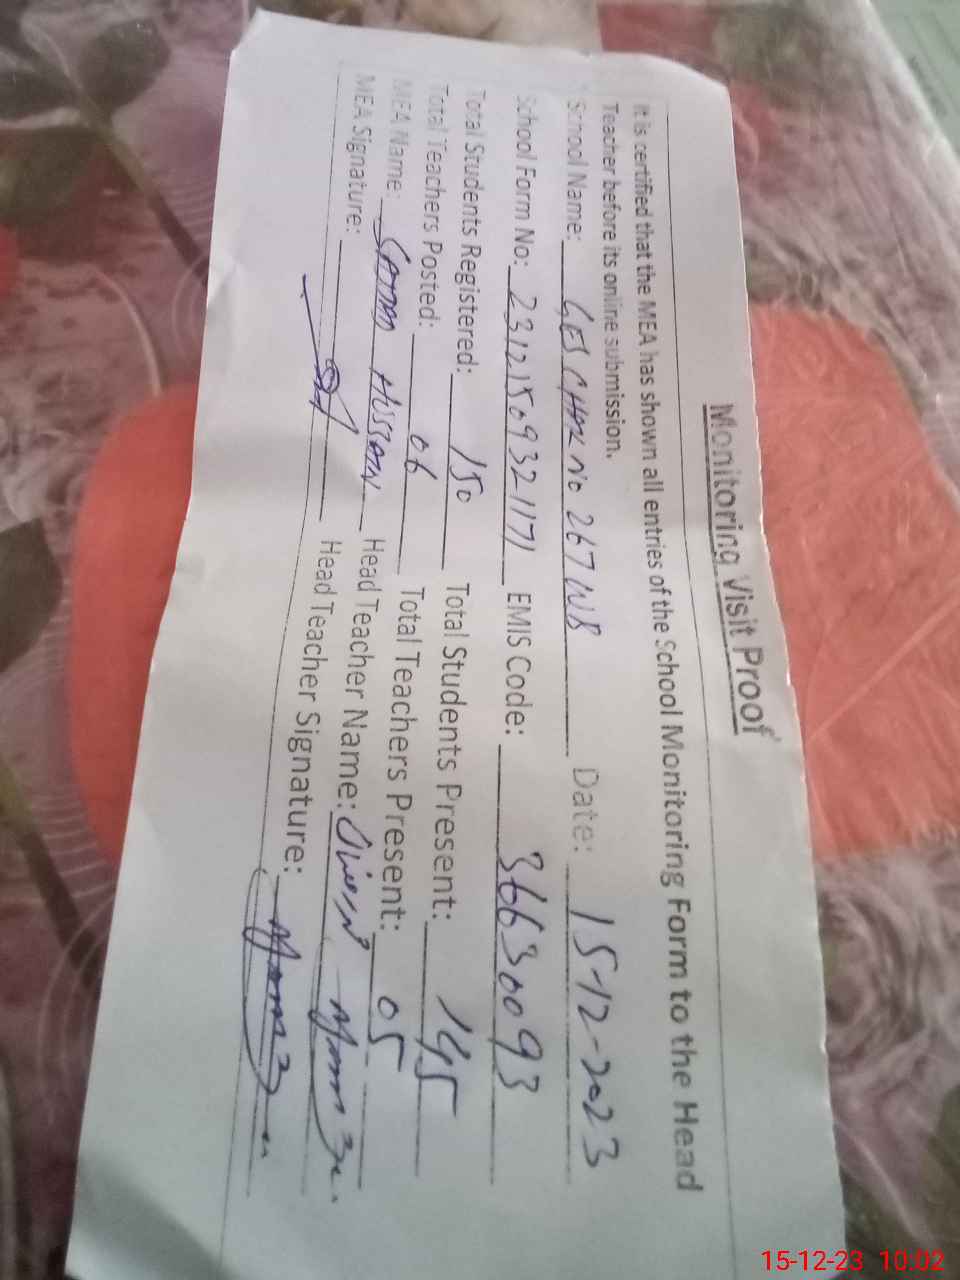 Monitoring Visit Proof
It is certified that the MEA has shown all entries of the School Monitoring Form to the Head
Teacher before its online submission.
School Name: GES CHAK NO 267 WB Date: 15-12-2023
School Form No: 23121509321171 EMIS Code: 36630093
Total Students Registered: 150 Total Students Present: 145
Total Teachers Posted: 06 Total Teachers Present: 05
MEA Name: HUSSAIN Head Teacher Name:
MEA Signature: Head Teacher Signature:
15-12-23 10:02